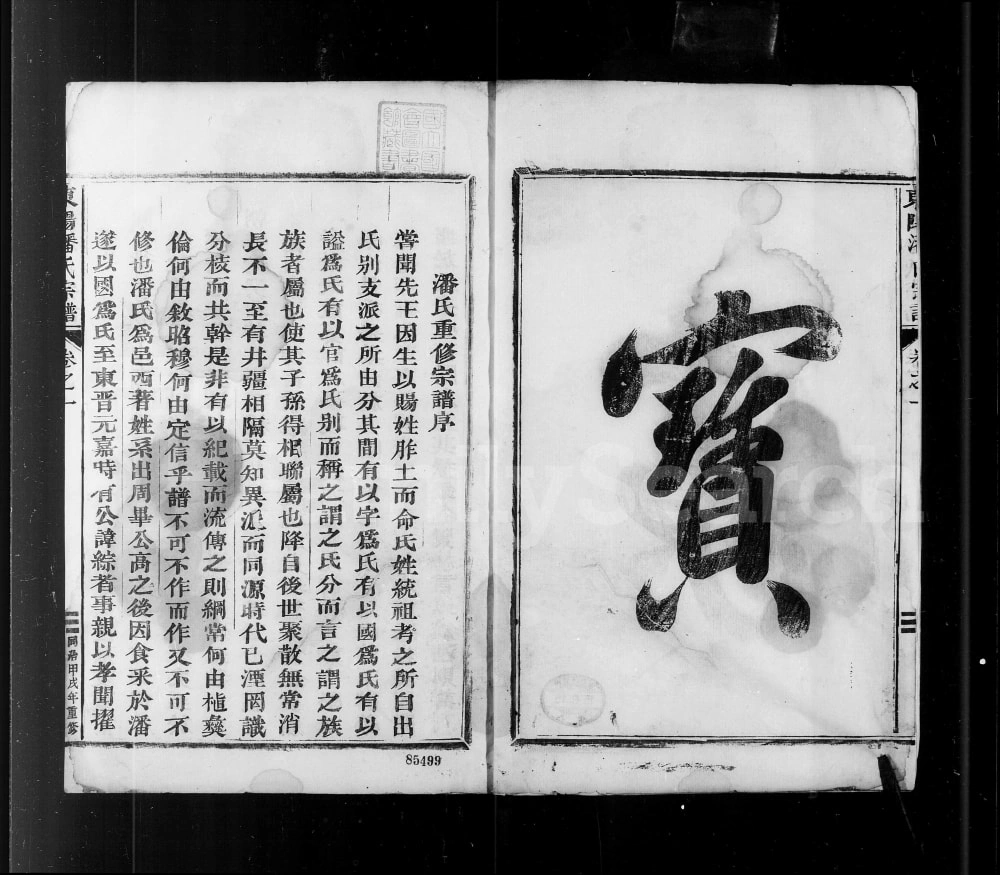 寶
東陽潘氏宗譜
卷之一
潘氏重修宗譜序
嘗聞先王因生以賜姓胙土而命氏姓統祖考之所自出
氏別支派之所由分其間有以字爲氏有以國爲氏有以
謚爲氏有以官爲氏別而稱之謂之氏分而言之謂之族
族者屬也使其子孫得相聯屬也降自後世聚散無常消
長不一至有井疆相隔莫知異派而同源時代已湮罔識
分枝而共幹是非有以紀載而流傳之則綱常何由植彝
倫何由敘昭穆何由定信乎譜不可不作而作又不可不
修也潘氏爲邑西著姓系出周畢公高之後因食采於潘
遂以國爲氏至東晋元嘉時有公諱綜者事親以孝聞擢
東陽潘氏宗譜
卷之一
同治甲戌年重修
85499